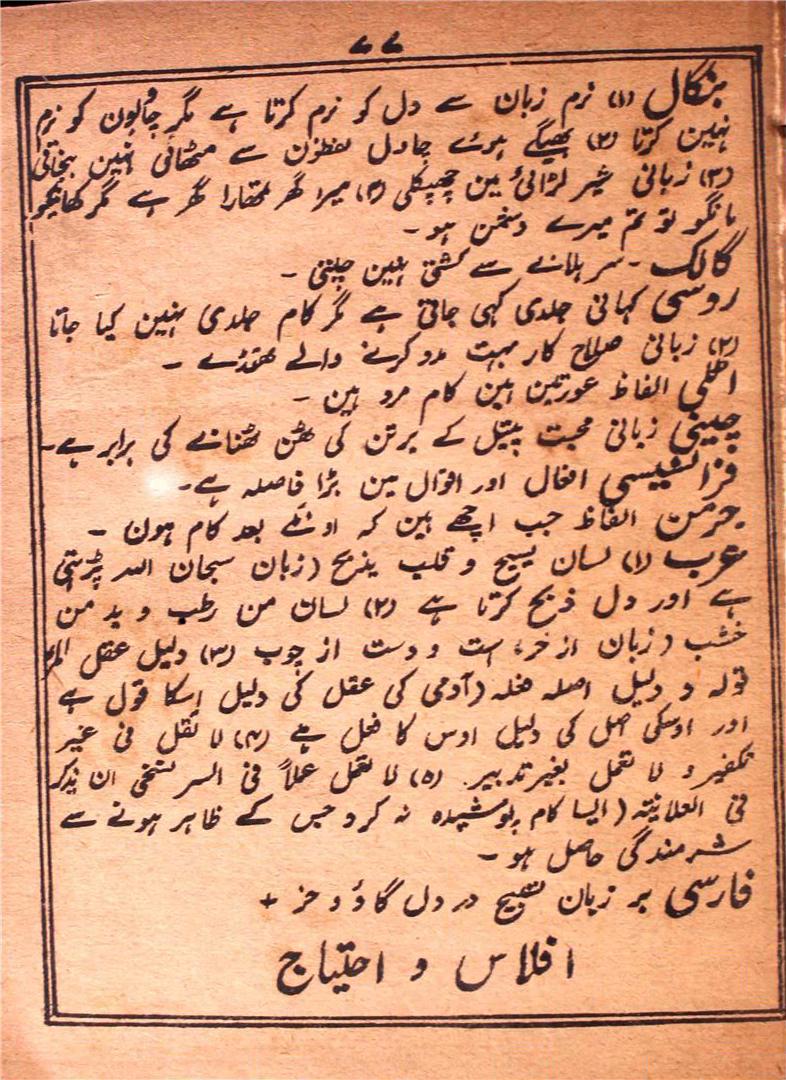 ۷۷
بنگال (۱) نرم زبان سے دل کو نرم کرتا ہے مگر چانولون کو نرم
نہین کرتا (۲) بھیگے ہوے چاول لفظون سے مٹھائی نہین بنجاتی
(۳) زبانی شیر لڑائی مین چھپکلی (۴) میرا گھر تمھارا گھر ہے مگر کھانیکو
مانگو تو تم میرے دشمن ہو -
گالک - سر ہلانے سے کشتی نہین چلتی -
روسی کہانی جلدی کہی جاتی ہے مگر کام جلدی نہین کیا جاتا
(۲) زبانی صلاح کار بہت مدد کرنے والے تھوڑے -
اطلی الفاظ عورتین ہین کام مرد ہین -
چینی زبانی محبت پیتل کے برتن کی ٹھن ٹھنانے کی برابر ہے -
فرانسیسی افعال اور اقوال مین بڑا فاصلہ ہے -
جرمن الفاظ جب اچھے ہین کہ اونکے بعد کام ہون -
عرب (۱) لسان یسبح و قلب یذبح (زبان سبحان اللہ پڑہتی
ہے اور دل ذبح کرتا ہے (۲) لسان من رطب و ید من
خشب (زبان از خرما است و دست از چوب (۳) دلیل عقل المرء
قولہ و دلیل اصلہ فعلہ (آدمی کی عقل کی دلیل اسکا قول ہے
اور اوسکی اصل کی دلیل اوس کا فعل ہے (۴) لا تقل فی غیر
تکفیر و لا تعمل بغیر تدبیر (۵) لا تعمل عملاً فی السر تستحی ان یذکر
فی العلانیتہ (ایسا کام پوشیدہ نہ کرو جس کے ظاہر ہونے سے
شرمندگی حاصل ہو -
فارسی بر زبان تسبیح در دل گاؤ و خر +
افلاس و احتیاج